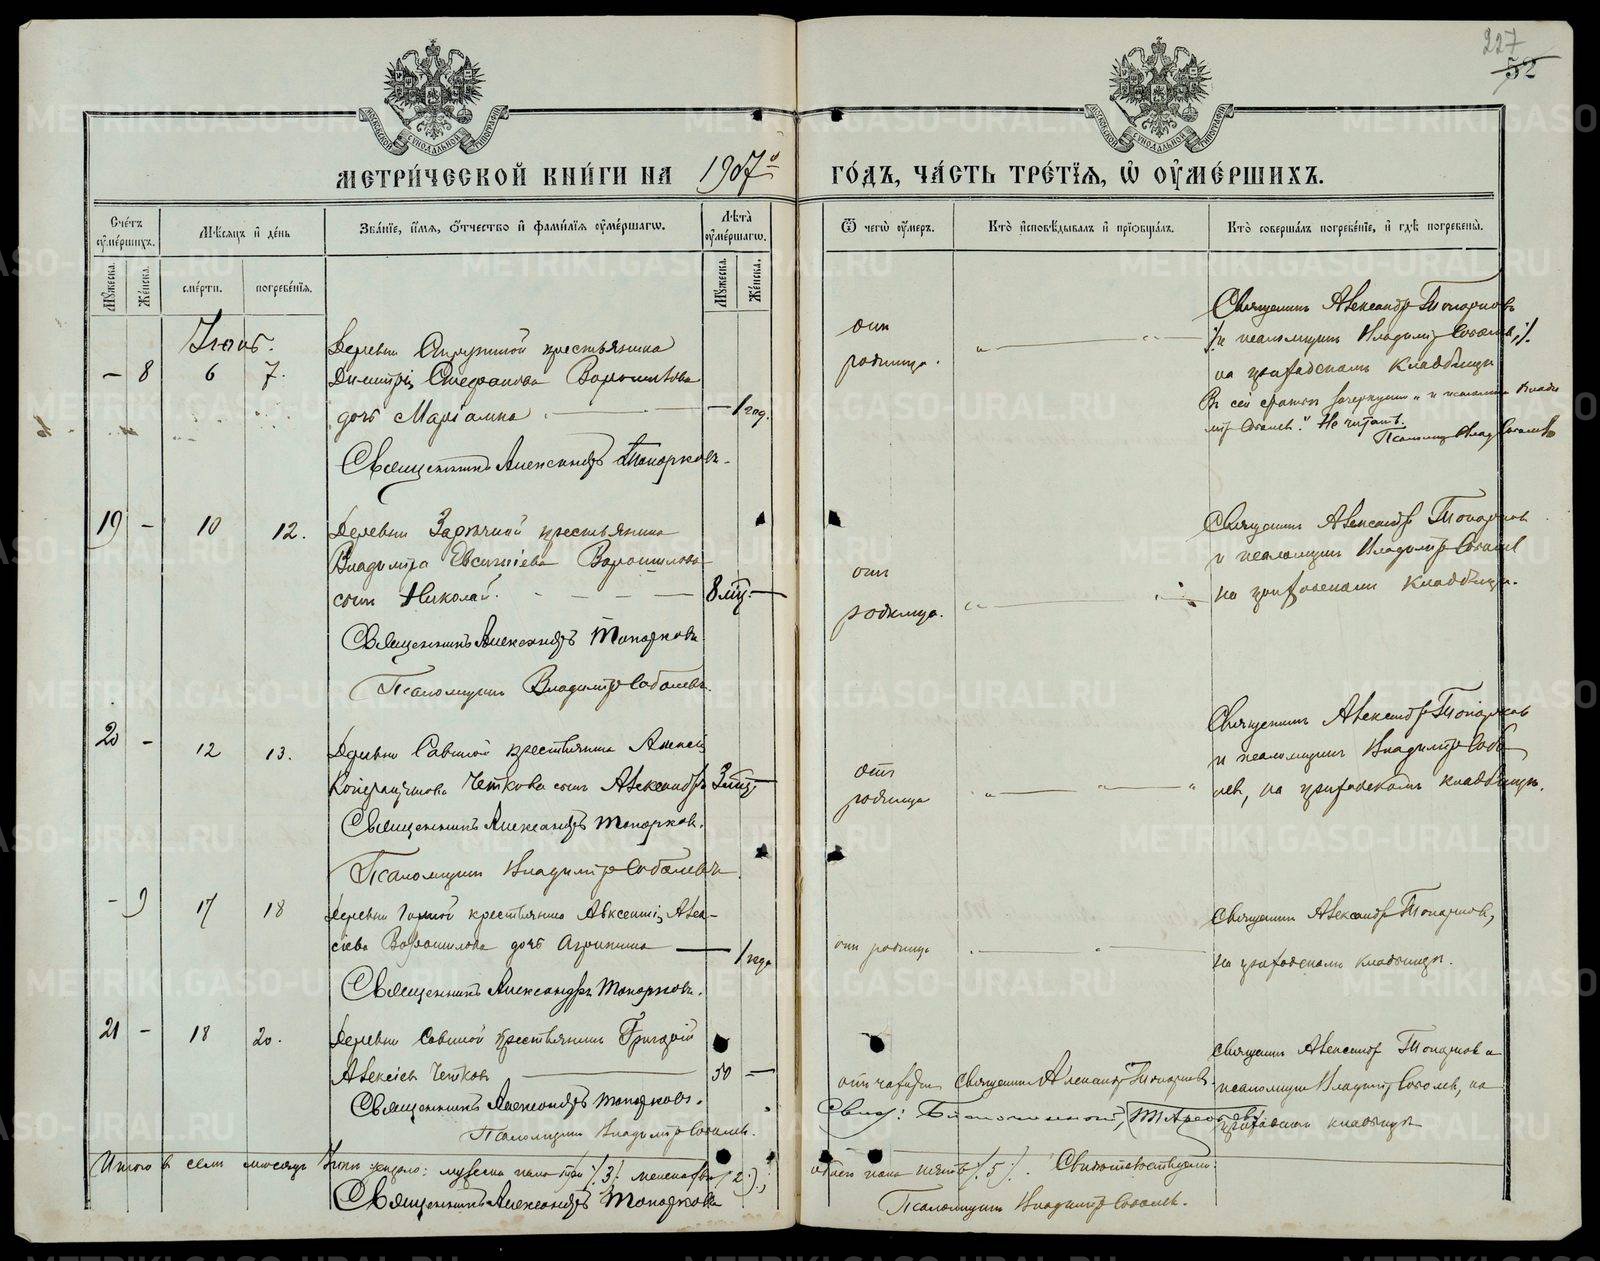 227
52
МОСКОВСКОЙ СѴНОДАЛЬНОЙ ТИПОГРАФІИ
МОСКОВСКОЙ СѴНОДАЛЬНОЙ ТИПОГРАФІИ
МЕТРИ́ЧЕСКОЙ КНИ́ГИ НА 1907 ГО́ДЪ, ЧА́СТЬ ТРЕ́ТІѦ, Ѡ҆ ОУ҆МЕ́РШИХЪ.
Сче́тъ оу҆ме́ршихъ.
Мꙋ́жеска.
Же́нска.
Мѣ́сяцъ и҆ де́нь
сме́рти.
погребе́нїѧ.
Зва́нїе, и҆́мѧ, ѻ҆́тчество и҆ фамі́лїѧ оу҆ме́ршагѡ.
Лѣ́та оу҆ме́ршагѡ.
Мꙋ́жеска.
Же́нска.
Ѿ чегѡ̀ оу҆́меръ.
Кто̀ и҆сповѣ́дывалъ и҆ прїѻбща́лъ.
Кто̀ соверша́лъ погребе́нїе, и҆ гдѣ̀ погребены̀.
Іюнь.
— 8 6 7.
Деревни крестьянина
Димитрія Стефанова Ворошилова
дочь Маріамна — 1 год.
Священникъ Александръ Топорковъ.
отъ
родимца.
Священникъ Александръ Топорковъ
/: и псаломщикъ Владимір Соболевъ, :/
на приходскомъ кладбищѣ
Въ сей строкѣ зачеркнуто „и псаломщикъ Влади
міръ Соболевъ." Не читать.
Псаломщ. Влад. Соболевъ
19 — 10 12.
Деревни Зарѣчной крестьянина
Владиміра Евсигніева Ворошилова
сынъ Николай. — 8 мѣс. —
Священникъ Александръ Топорковъ
Псаломщикъ Владиміръ Соболевъ.
отъ
родимца.
Священникъ Александръ Топорковъ
и псаломщикъ Владиміръ Соболевъ
на приходскомъ кладбищѣ.
20 — 12 13.
Деревни Савиной крестьянина Алексія
Четкова сынъ Александръ 3 мѣс. —
Священникъ Александръ Топорков.
Псаломщикъ Владиміръ Соболевъ
отъ
родимца
Священникъ Александръ Топорков
и псаломщикъ Владиміръ Собо
лев, на приходскомъ кладбищѣ.
— 9 17 18
Деревни крестьянина Авксентія Алек-
сіева Ворошилова дочь Агрипина — 1 года
Священникъ Александръ Топорковъ.
отъ родимца
Священник Александр Топорков,
на приходскомъ кладбищѣ.
21 — 18 20.
Деревни Савиной крестьянинъ Григорій
Алексіев Четков — 50 —
Священникъ Александръ Топорковъ.
Псаломщикъ Владиміръ Соболев.
отъ чахотки
Священник Александр Топорков.
Священник Александр Топорков и
псаломщик Владимір Соболев, на
приходском кладбищѣ
Итого в семъ мѣсяцѣ Іюнѣ умерло: мужеска пола три /:3:/ женска два /:2:/;
обоего пола пять /:5:/. Свидѣтельствуемъ:
Священникъ Александръ Топорковъ
Псаломщикъ Владиміръ Соболевъ.
METRIKI.GASO-URAL.RU